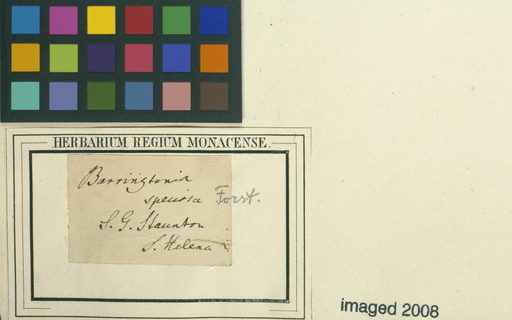 HERBARIUM REGIUM MONACENSE.
Barringtonia
speciosa Forst.
S. G. Staunton
S. Helena
imaged 2008